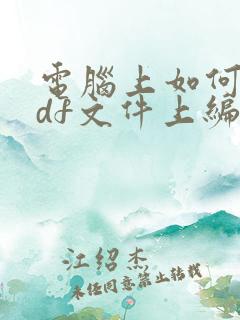 電腦上如何
df文件上編
江绍杰
未经同意禁止转载